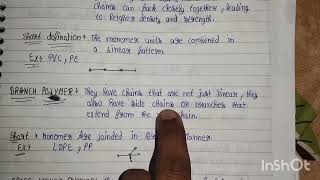 chains can pack closely together, leading
to heigher density and strength.
Short defination → The monomer units are combined in
a linear pattern.
Ex → PVC, PE
BRANCH POLYMER → They have chains that are not just linear, they
also have side chains or branches that
extend from the chain.
Short → Monomer are joinded in manner.
Ex → LDPE, PP
InShOt